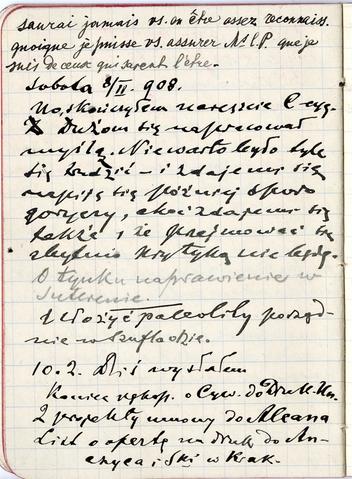 saurai jamais vs. en être assez reconnaiss.
quoique je puisse vs. assurer M. l. P. que je
suis de ceux qui savent l'être.
Sobota 8/II. 908.
No, skończyłem nareszcie C-cyę.
Dużom się napracował
myślą. Nie warto było tyle
się trudzić – i zdaje mi się
napiję się później sporo
goryczy, choć zdaje mi się
także i że przejmować się
zbytnio krytyką nie będę.
O tynku naprawieniu w
Suterenie.
Ułożyć paleolity porząd-
nie w szufladzie.
10.2. Dziś wysłałem
Koniec rękop. o Cyw. do Druk. Un.
2 projekty umowy do Alcana
List o ofertę na druk do An-
czyca i Ski w Krak.